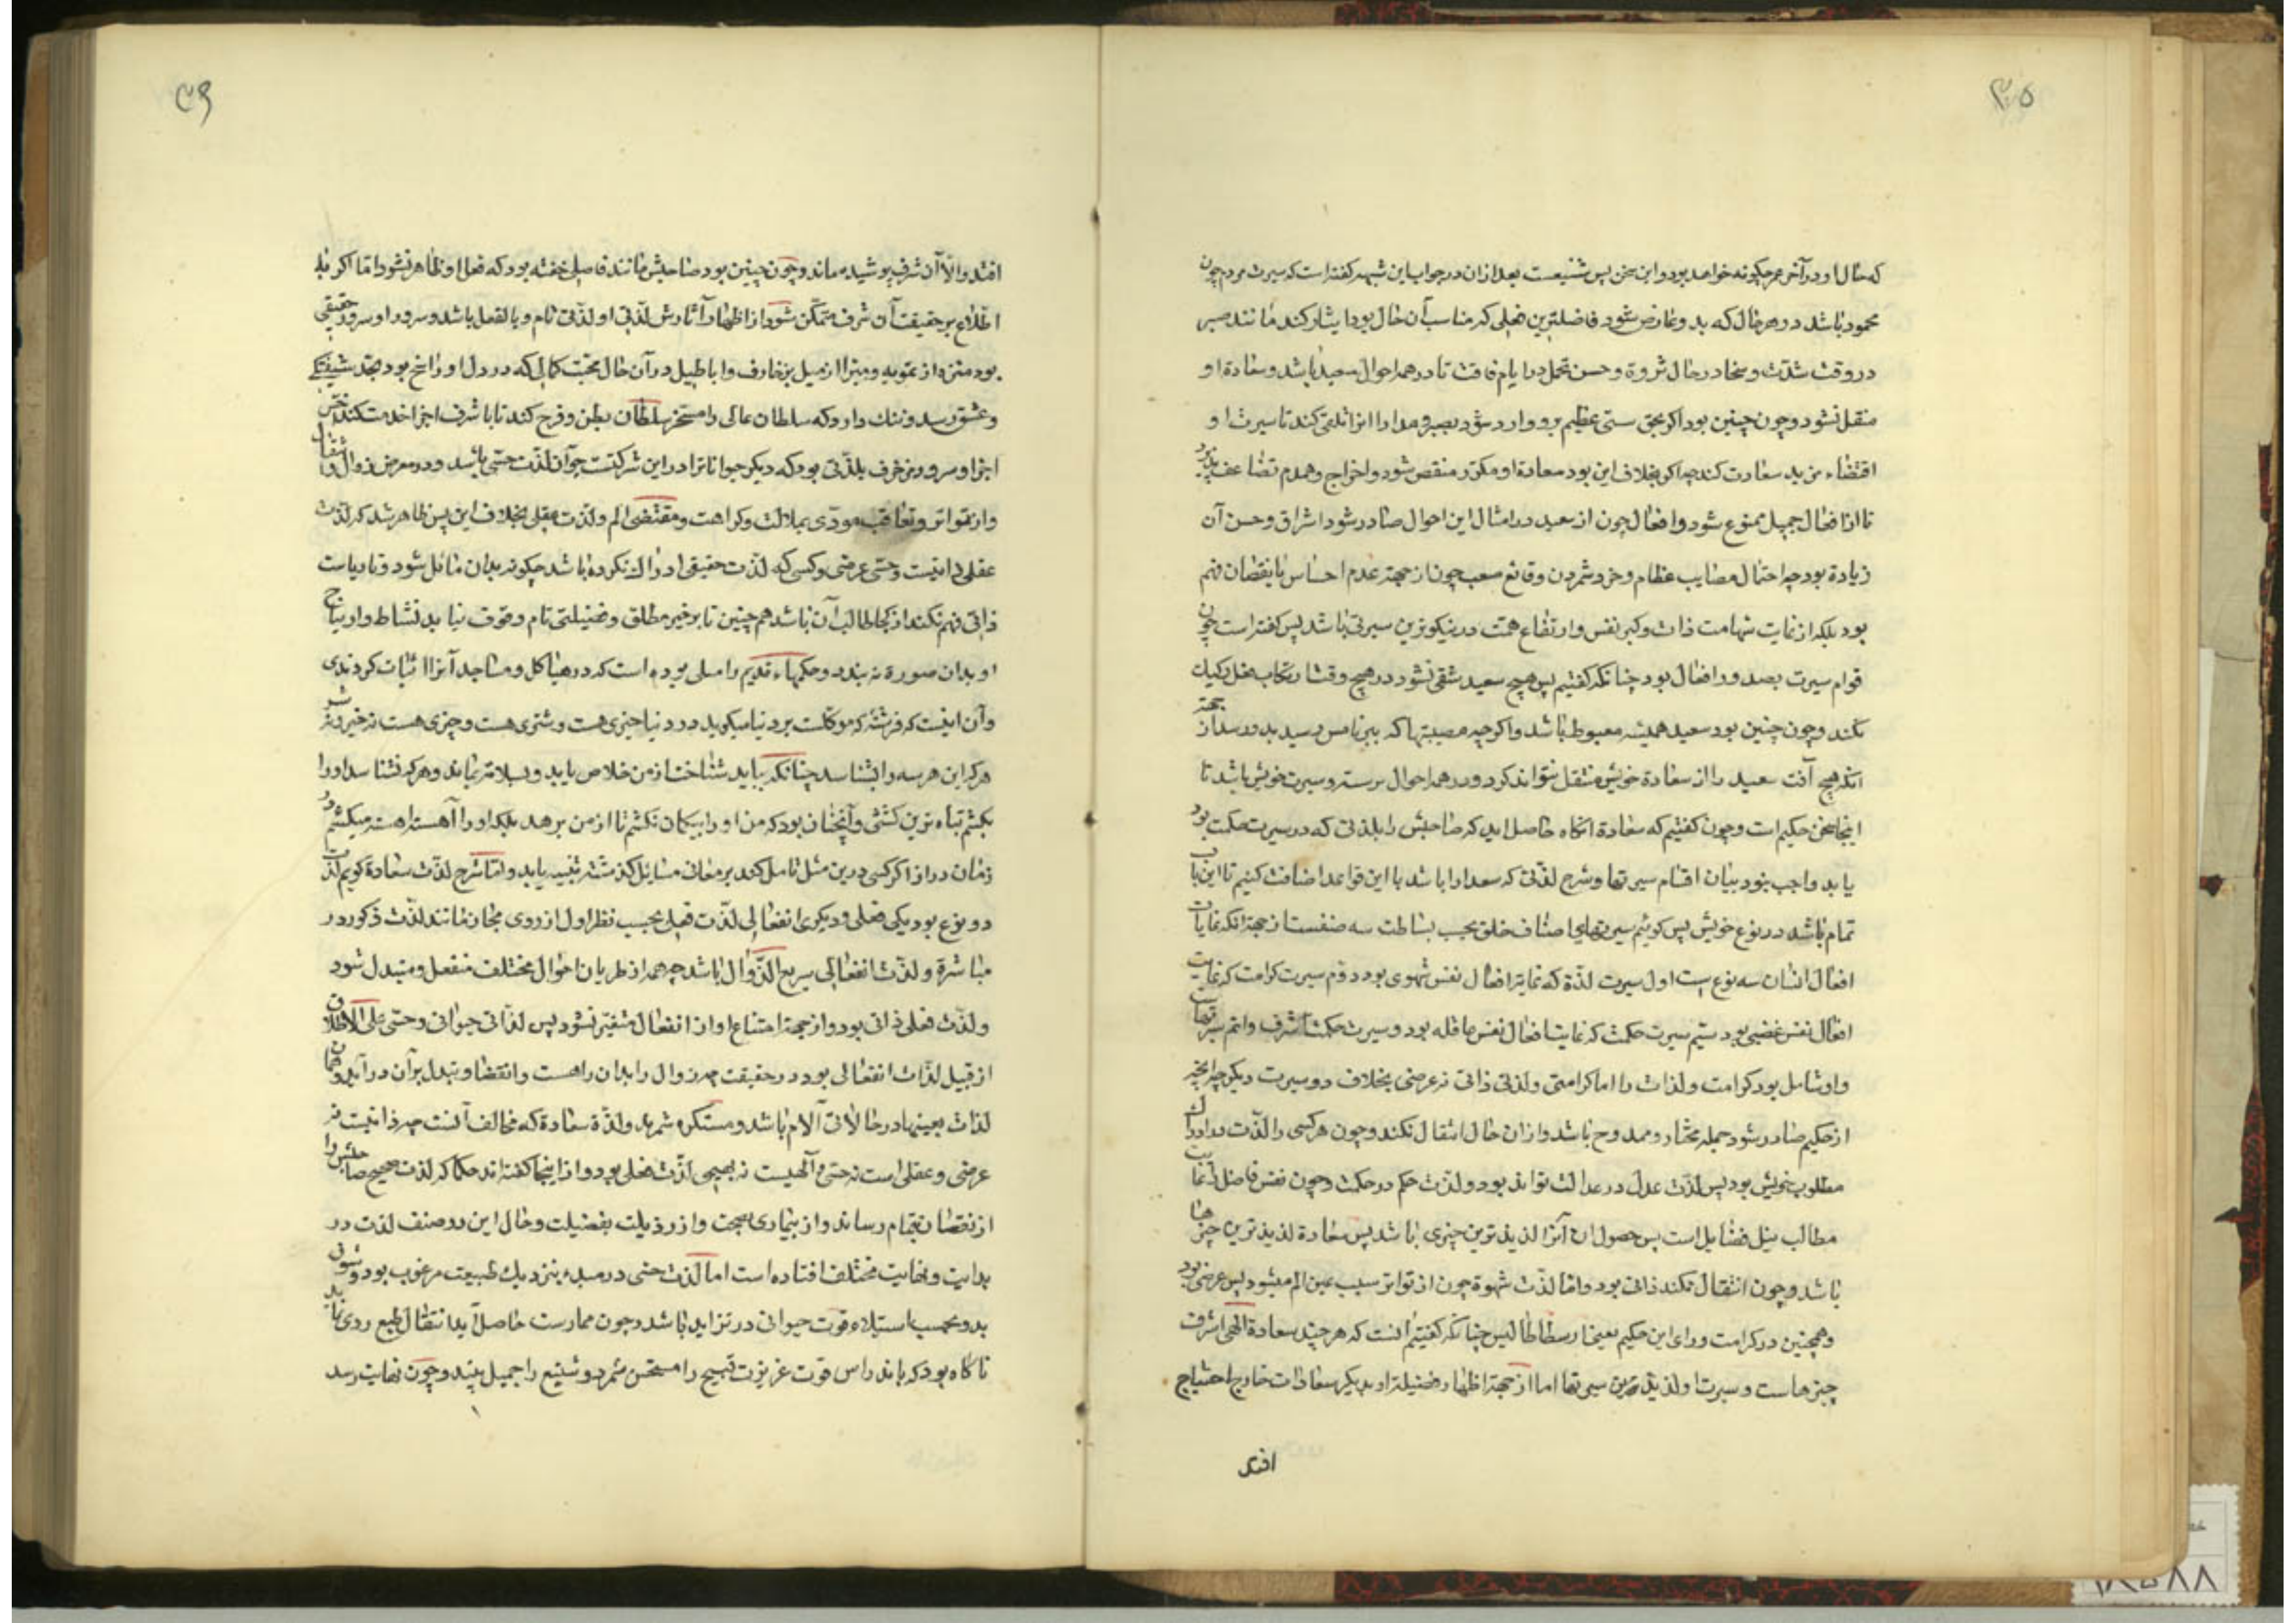 ۳۵
که حال او در آخر عمر چگونه خواهد بود و این سخن بس شنیعست بعد از آن در جواب این شبهه گفته است که سیرت مردم چون
محمود باشد در هر حال که بدو عارض شود فاضلترین فعلی که مناسب آن حال بود ایثار کند مانند صبر
در وقت شدت و سخا در حال ثروة و حسن تحمل در ایام فاقت تا در همه احوال سعید باشد و سعادة او
منتقل نشود و چون چنین بود اگر عظیم برو وارد شود بصبر و مدارا آنرا تلقی کند تا سیرت او
اقتضاء مزید سعادت کند چه اگر بخلاف این بود سعادة او مکدر منقص شود و
تا از افعال جمیل ممنوع شود و افعال چون از سعید در امثال این احوال صادر شود اشراق و حسن آن
زیادة بود چه احتمال مصایب عظام و خرد شمردن وقائع صعب چون از جهة عدم احساس یا نقصان فهم
بود بلکه از غایت شهامت ذات و کبر نفس و ارتفاع همت در نیکوترین سیرتی باشد پس گفته است چون
قوام سیرت بصدور افعال بود چنانکه گفتیم پس هیچ سعید شقی نشود در هیچ وقت ارتکاب فعل رکیک
نکند و چون چنین بود سعید همیشه مغبوط باشد و اگر چه مصیبتها که ببرنامس رسید بدو رسد از جهة
آنکه هیچ آفت سعید را از سعادة خویش منتقل نتواند کرد و در همه احوال بر سیرت خویش باشد تا
اینجا سخن حکیم است و چون گفتیم که سعادة آنگاه حاصل آید که صاحبش را بلذتی که در سیرت حکمت بود
یابد واجب بود بیان اقسام سیرتها و شرح لذتی که سعدا را باشد با این قواعد اضافت کنیم تا این باب
تمام باشد در نوع خویش پس گوئیم سیرتهای اصناف خلق بحسب بساطت سه صنفست از جهة آنکه غایات
افعال انسان سه نوع است اول سیرت لذة که غایة افعال نفس شهوی بود دوم سیرت کرامت که غایت
افعال نفس غضبی بود سیم سیرت حکمت که غایت افعال نفس عاقله بود و سیرت حکمت اشرف و اتم سیرتها
و او شامل بود کرامت و لذات را اما کرامتی و لذتی ذاتی نه عرضی بخلاف دو سیرت دیگر چه آنچه
از حکیم صادر شود جمله مختار و ممدوح باشد و از آن حال انتقال نکند و چون هر کسی را لذت در ادراک
مطلوب خویش بود پس لذت عدل در عدالت تواند بود و لذت حکم در حکمت و چون نفس فاضل را غایت
مطالب نیل فضایل است پس حصول آن آنرا لذیذ ترین چیزی باشد پس سعادة لذیذ ترین چیزها
باشد و چون انتقال نکند ذاتی بود و اما لذت شهوة چون از تواتر سبب عین الم میشود پس عرضی بود
و همچنین در کرامت و رای این حکیم یعنی ارسطاطالیس چنانکه گفتیم آنست که هر چند سعادة الهی اشرف
چیزهاست و سیرت او لذیذ ترین سیرتها اما از جهة اظهار فضیلة او بدیگر سعادات خارج احتیاج
افتد
۳۶
افتد والا آن شرف پوشیده ماند و چون چنین بود صاحبش مانند فاضلی خفته بود که فعل او ظاهر نشود اما اگر با
اطلاع بر حقیقت آن شرف متمکن شود از اظهار آثارش لذتی او لذتی تام و بالفعل باشد و سرور او سرور حقیقی
بود منزه از تمویه و مبرا از میل بزخارف و اباطیل در آن حال محبت کمالی که در دل او راسخ بود بحد شیفتگی
و عشق رسد و ننگ دارد که سلطان عالی را مسخر سلطان بطن و فرج کند تا با شرف اجزا خدمت کند اخس
اجزا و سرور مزخرف بلذتی بود که دیگر حیوانات را در این شرکتست چه آن لذت حسی باشد و در معرض زوال و انتقال
و از تواتر و تعاقب مودی بملالت و کراهت و مقتضی الم و لذت عقلی بخلاف این پس ظاهر شد که لذت
عقلی ذاتیست و حسی عرضی و کسی که لذت حقیقی ادراک نکرده باشد چگونه بدان مائل شود و تا ریاست
ذاتی فهم نکند از کجا طالب آن باشد همچنین تا بر خیر مطلق و فضیلتی تام وقوف نیابد نشاط و ارتیاح
او بدان صورة نه بندد و حکماء قدیم را مثلی بوده است که در هیاکل و مساجد آنرا اثبات کردندی
و آن اینست که فرشته که موکلست بر دنیا میگوید در دنیا خیری هست و شری هست و چیزی هست نه خیر و نه شر
هر که این هر سه را بشناسد چنانکه بباید شناخت از من خلاص یابد و بسلامة بماند و هر که نشناسد او را
بکشم تباه ترین کشتنی و آنچنان بود که من او را بیکبار نکشم تا از من برهد بلکه او را آهسته آهسته میکشم در
زمان دراز اگر کسی درین مثل تامل کند بر معانی مسائل گذشته تنبیه یابد و اما شرح لذت سعادة گویم لذت
دو نوع بود یکی فعلی و دیگری انفعالی لذت فعلی بحسب نظر اول از روی مجاز مانند لذت ذکور در
مباشرة و لذت انفعالی سریع الزوال باشد چه همه از طریان احوال مختلف منفعل و متبدل شود
و لذت فعلی ذاتی بود و از جهة امتناع او از انفعال متغیر نشود پس لذاتی حیوانی و حسی علی الاطلاق
از قبیل لذات انفعالی بود در حقیقت چه زوال را بدان راهست و انقضا و تبدل بر آن در آید و همان
لذات بعینها در حالاتی آلام باشد و مستکره شمرند و لذة سعادة که مخالف آنست چه ذاتیست نه
عرضی و عقلی است نه حسی و الهیست نه بهیمی لذت فعلی بود و از اینجا گفته اند حکما که لذت صحیح صاحبش را
از نقصان بتمام رساند و از بیماری بصحت و از رذیلت بفضیلت و حال این دو صنف لذت در
بدایت و نهایت مختلف افتاده است اما لذت حسی در مبدء بنزدیک طبیعت مرغوب بود و شوق
بدو بحسب استیلاء قوت حیوانی در تزاید باشد و چون ممارست حاصل آید انتقال طبع روی نماید
تا گاه بود که قوت غریزت قبیح را مستحسن شمرد و شنیع را جمیل بیند و چون نهایت رسد